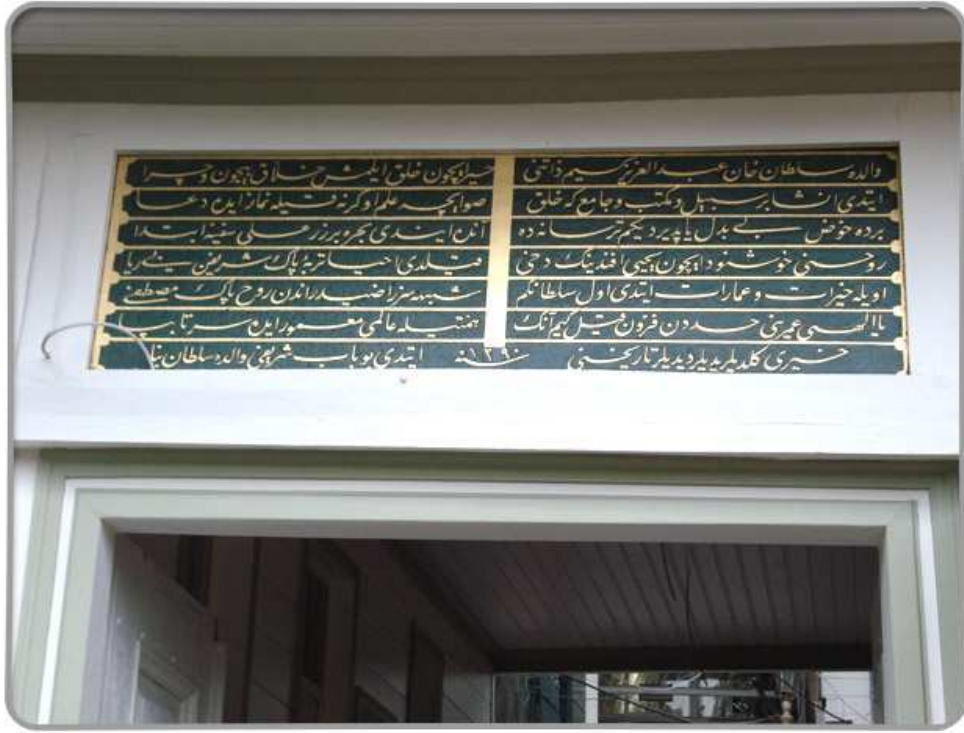 والده سلطان خان عبد العزيز كيم ذاتنى خير ايچون خلق ايلمش خلاق بيچون و چرا
ايتدى انشا بر سبيل و مكتب و جامع كه خلق صو ايچه علم اوكرنه قيله نماز ايده دعا
برده حوض بى بدل ياپديرديكم ترسانه ده آنده ايندى بحره برزرهلى سفينه ابتدا
روحنى خوشنود ايچون يحيى افندينك دخى قيلدى احيا تربۀ پاك شريفن بى ريا
اويله خيرات و عمارات ايتدى اول سلطانكم شبهه سز راضيدر اندن روح پاك مصطفى
يا الهى عمرينى حددن فزون قيل كيم آنك همتيله عالمى معمور ايده سرتا بپا
خيرى كلديلر ديديلر تاريخنى ١٢٩٠ ايتدى بو باب شريفى والده سلطان بنا